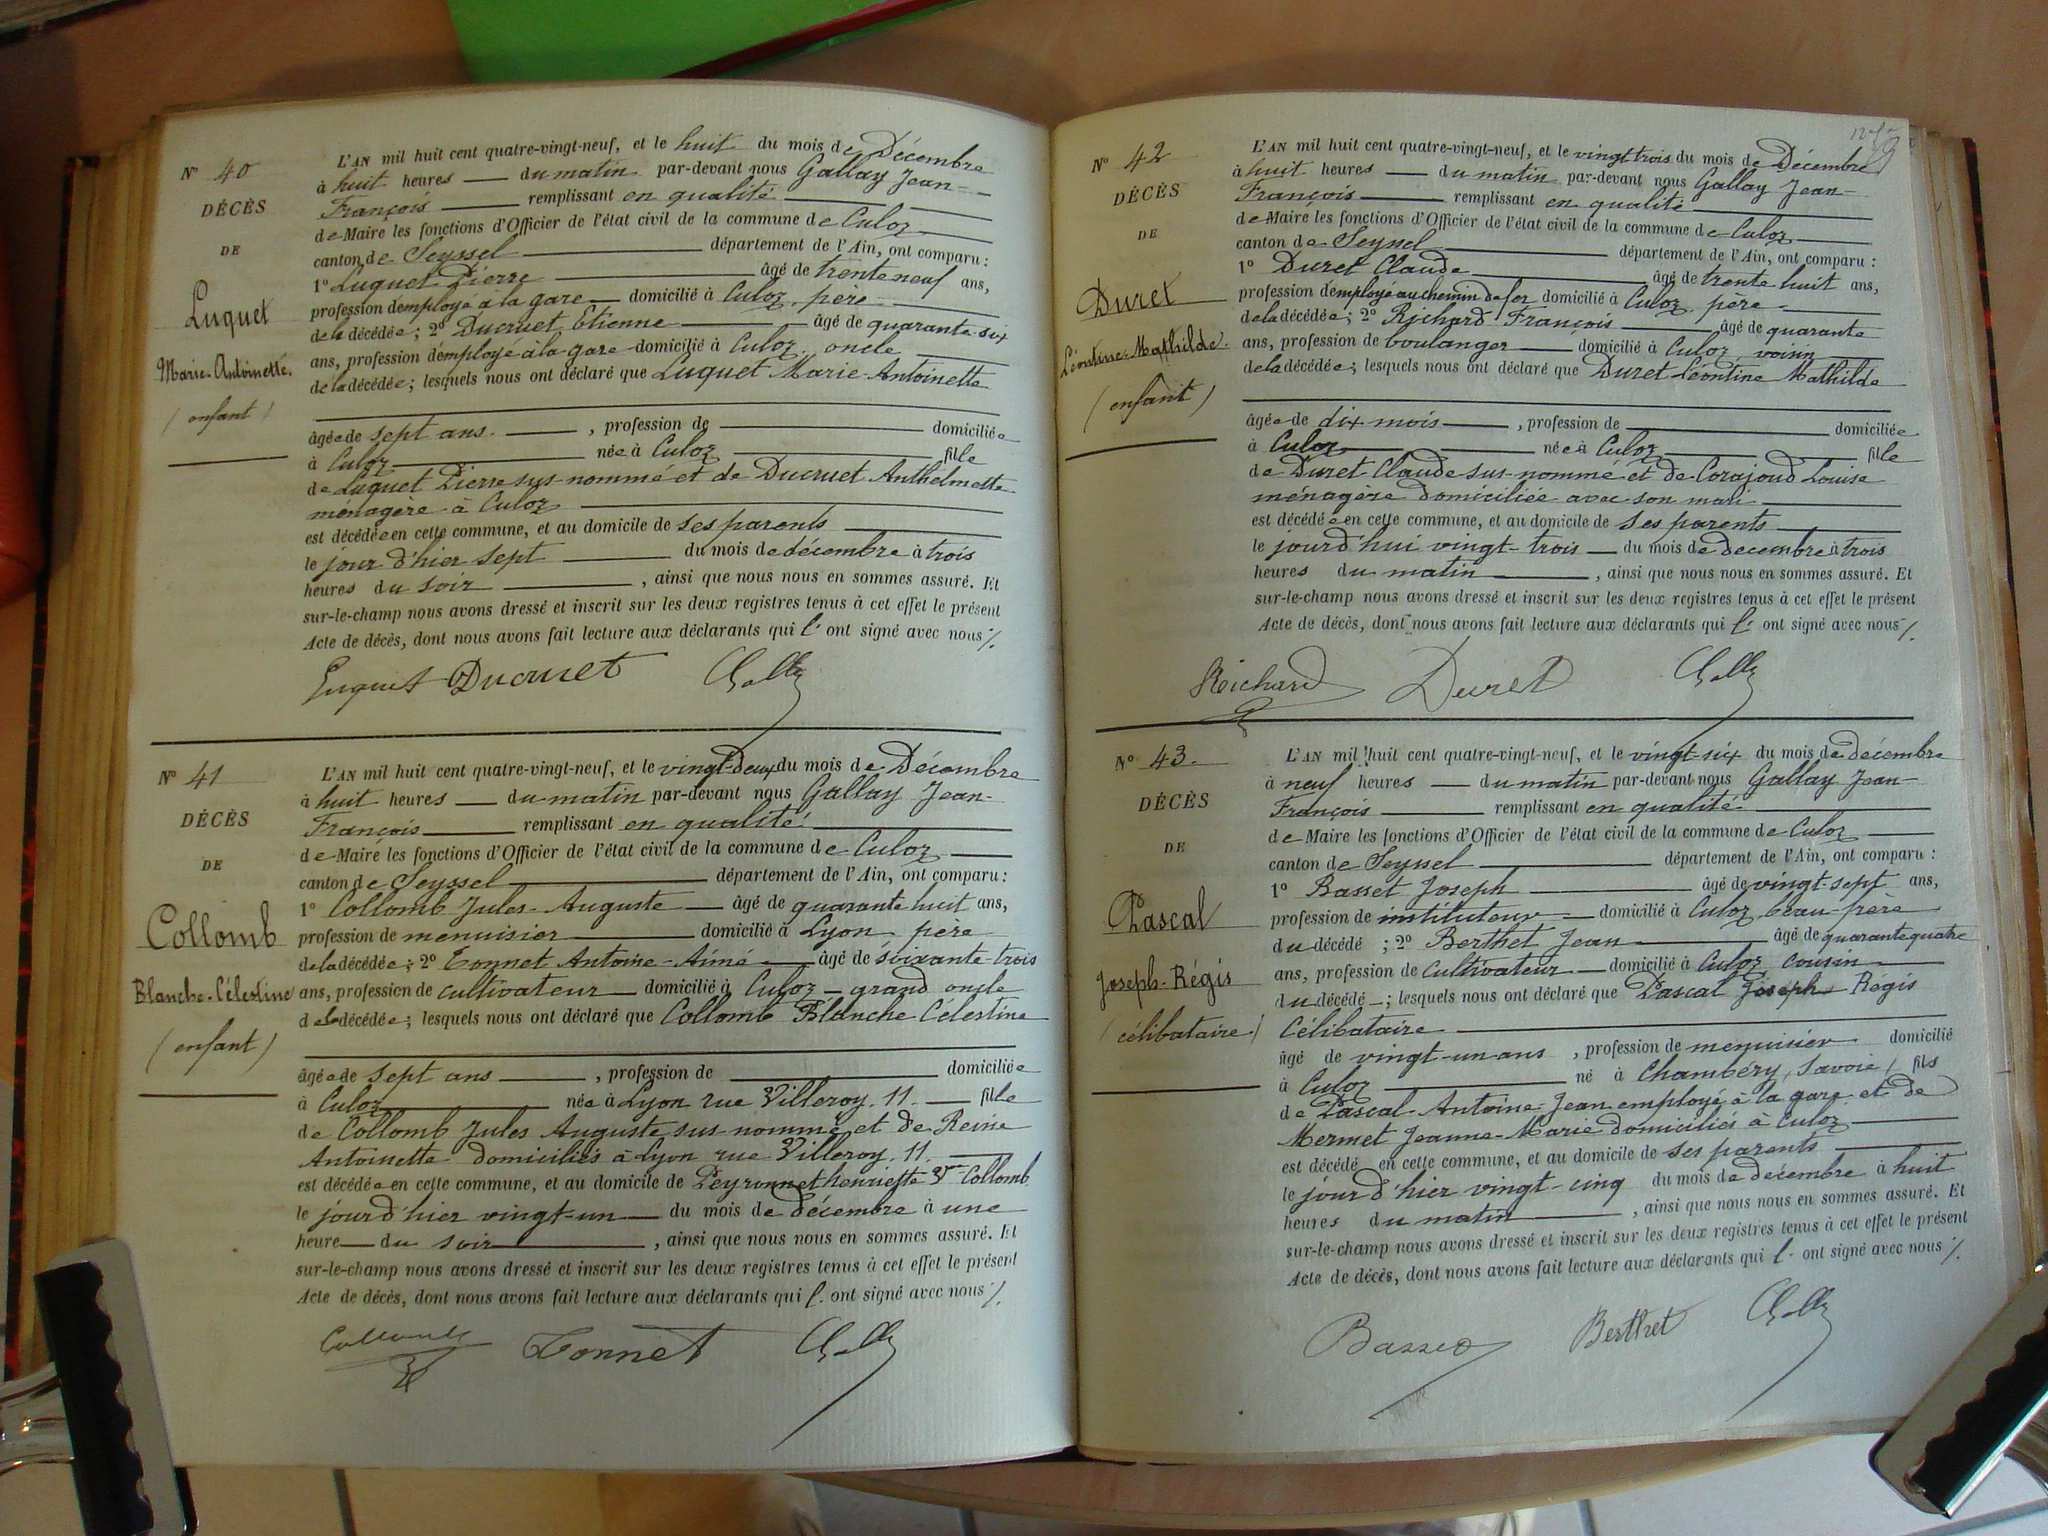 N° 40
DÉCÈS
DE
Luquet
Marie-Antoinette.
(enfant)
L'AN mil huit cent quatre-vingt-neuf, et le huit du mois de Décembre
à huit heures — du matin par-devant nous Gallay Jean-
François — remplissant en qualité
de Maire les fonctions d'Officier de l'état civil de la commune de Culoz
canton de Seyssel — département de l'Ain, ont comparu :
1° Luquet Pierre — âgé de trente neuf ans,
profession d'employé à la gare — domicilié à Culoz, père
de la décédée ; 2° Ducruet Etienne — âgé de quarante-six
ans, profession d'employé à la gare domicilié à Culoz, oncle
de la décédée ; lesquels nous ont déclaré que Luquet Marie-Antoinette
âgée de sept ans. — , profession de — domiciliée
à Culoz — née à Culoz — fille
de Luquet Pierre sus-nommé et de Ducruet Anthelmette
ménagère à Culoz
est décédée en cette commune, et au domicile de ses parents
le jour d'hier sept — du mois de décembre à trois
heures du soir — , ainsi que nous nous en sommes assuré. Et
sur-le-champ nous avons dressé et inscrit sur les deux registres tenus à cet effet le présent
Acte de décès, dont nous avons fait lecture aux déclarants qui l' ont signé avec nous ·/.
Luquet Ducruet Gallay
N° 41
DÉCÈS
DE
Collomb
Blanche-Célestine
(enfant)
L'AN mil huit cent quatre-vingt-neuf, et le vingt-deux du mois de Décembre
à huit heures — du matin par-devant nous Gallay Jean-
François — remplissant en qualité
de Maire les fonctions d'Officier de l'état civil de la commune de Culoz
canton de Seyssel — département de l'Ain, ont comparu :
1° Collomb Jules-Auguste — âgé de quarante huit ans,
profession de menuisier — domicilié à Lyon père
de la décédée ; 2° Tonnet Antoine-Aimé — âgé de soixante-trois
ans, profession de cultivateur — domicilié à Culoz — grand oncle
de la décédée ; lesquels nous ont déclaré que Collomb Blanche Célestine
âgée de sept ans — , profession de — domiciliée
à Culoz — née à Lyon rue Villeroy. 11. — fille
de Collomb Jules Auguste sus-nommé et de Reine
Antoinette domiciliés à Lyon rue Villeroy. 11.
est décédée en cette commune, et au domicile de Peyronnet henriette Vve Collomb
le jour d'hier vingt-un — du mois de décembre à une
heure — du soir — , ainsi que nous nous en sommes assuré. Et
sur-le-champ nous avons dressé et inscrit sur les deux registres tenus à cet effet le présent
Acte de décès, dont nous avons fait lecture aux déclarants qui l' ont signé avec nous ·/.
Collomb Tonnet Gallay
N° 42
DÉCÈS
DE
Duret
Léontine-Mathilde.
(enfant)
L'AN mil huit cent quatre-vingt-neuf, et le vingt trois du mois de Décembre
à huit heures — du matin par-devant nous Gallay Jean-
François — remplissant en qualité
de Maire les fonctions d'Officier de l'état civil de la commune de Culoz
canton de Seyssel — département de l'Ain, ont comparu :
1° Duret Claude — âgé de trente huit ans,
profession d'employé au chemin de fer domicilié à Culoz père
de la décédée ; 2° Richard François — âgé de quarante
ans, profession de boulanger — domicilié à Culoz, voisin
de la décédée ; lesquels nous ont déclaré que Duret Léontine Mathilde
âgée de dix mois — , profession de — domiciliée
à Culoz — née à Culoz — fille
de Duret Claude sus-nommé et de Corajoud Louise
ménagère domiciliée avec son mari
est décédée en cette commune, et au domicile de ses parents
le jour d'hui vingt-trois — du mois de decembre à trois
heures du matin — , ainsi que nous nous en sommes assuré. Et
sur-le-champ nous avons dressé et inscrit sur les deux registres tenus à cet effet le présent
Acte de décès, dont nous avons fait lecture aux déclarants qui l' ont signé avec nous ·/.
Richard Duret Gallay
N° 43.
DÉCÈS
DE
Pascal
Joseph-Régis
(célibataire)
L'AN mil huit cent quatre-vingt-neuf, et le vingt-six du mois de décembre
à neuf heures — du matin par-devant nous Gallay Jean-
François — remplissant en qualité
de Maire les fonctions d'Officier de l'état civil de la commune de Culoz
canton de Seyssel — département de l'Ain, ont comparu :
1° Basset Joseph — âgé de vingt-sept ans,
profession de instituteur — domicilié à Culoz, beau-frère
du décédé ; 2° Berthet Jean — âgé de quarante quatre
ans, profession de cultivateur — domicilié à Culoz cousin
du décédé — ; lesquels nous ont déclaré que Pascal Joseph Régis
Célibataire
âgé de vingt-un ans , profession de menuisier domicilié
à Culoz — né à Chambéry, (Savoie) fils
de Pascal Antoine-Jean employé à la gare et de
Mermet Jeanne-Marie domiciliés à Culoz
est décédé en cette commune, et au domicile de ses parents
le jour d'hier vingt-cinq du mois de décembre à huit
heures du matin — , ainsi que nous nous en sommes assuré. Et
sur-le-champ nous avons dressé et inscrit sur les deux registres tenus à cet effet le présent
Acte de décès, dont nous avons fait lecture aux déclarants qui l' ont signé avec nous ·/.
Basset Berthet Gallay